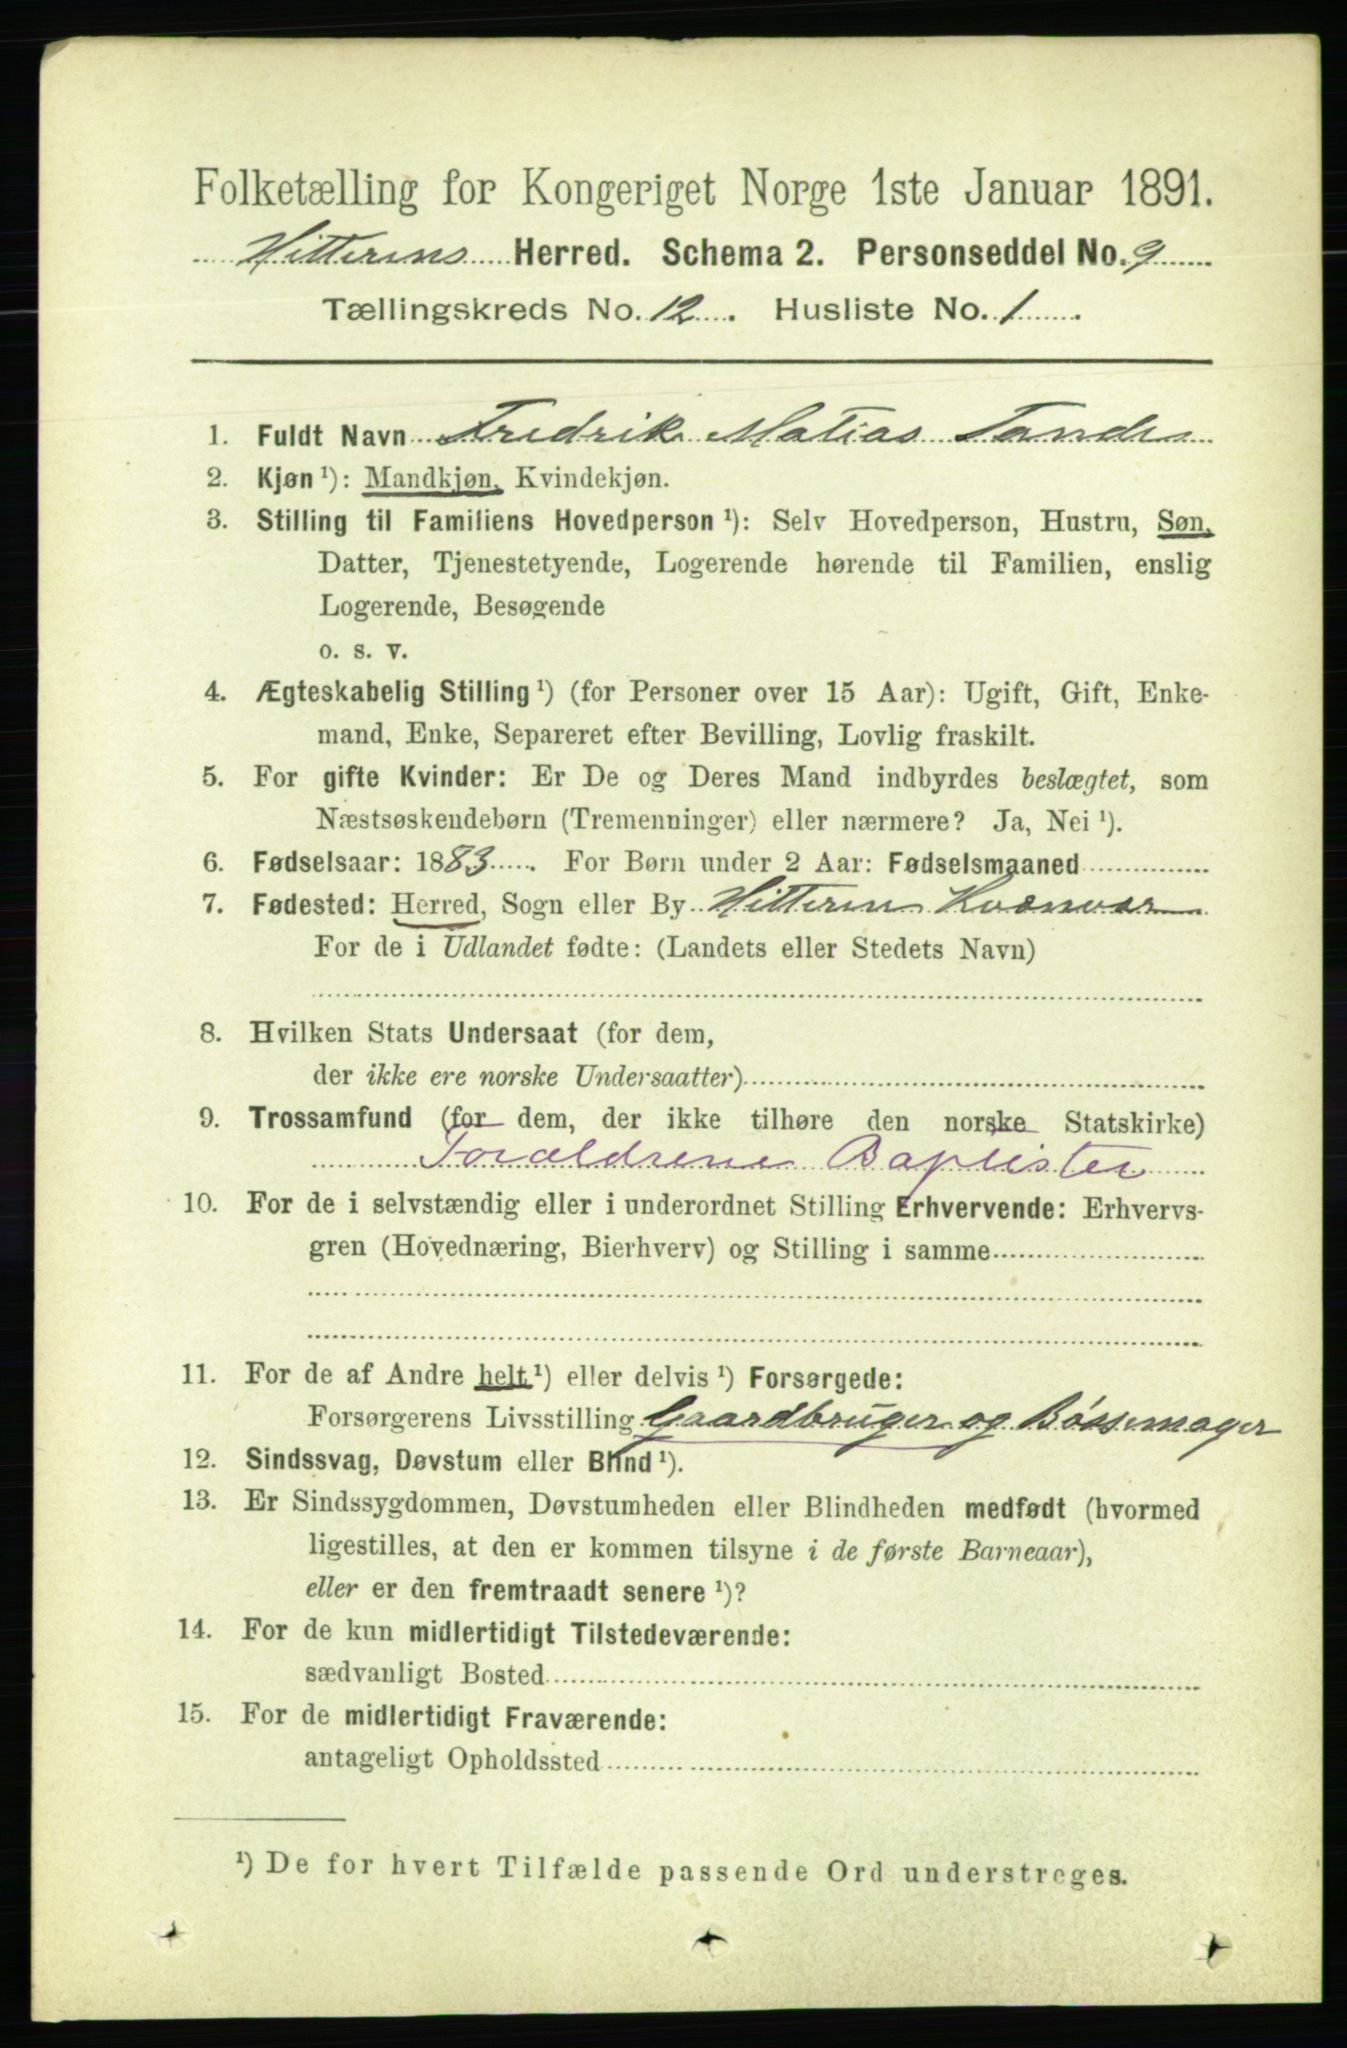 Folketælling for Kongeriget Norge 1ste Januar 1891.
Hitterens Herred. Schema 2. Personseddel No. 9
Tællingskreds No. 12. Husliste No. 1.
1. Fuldt Navn Fredrik Matias
2. Kjøn ¹): Mandkjøn, Kvindekjøn.
3. Stilling til Familiens Hovedperson ¹): Selv Hovedperson, Hustru, Søn,
Datter, Tjenestetyende, Logerende hørende til Familien, enslig
Logerende, Besøgende
o. s. v.
4. Ægteskabelig Stilling ¹) (for Personer over 15 Aar): Ugift, Gift, Enke-
mand, Enke, Separeret efter Bevilling, Lovlig fraskilt.
5. For gifte Kvinder: Er De og Deres Mand indbyrdes beslægtet, som
Næstsøskendebørn (Tremenninger) eller nærmere? Ja, Nei ¹).
6. Fødselsaar: 1883. For Børn under 2 Aar: Fødselsmaaned
7. Fødested: Herred, Sogn eller By Hitteren Kvænvær
For de i Udlandet fødte: (Landets eller Stedets Navn)
8. Hvilken Stats Undersaat (for dem,
der ikke ere norske Undersaatter)
9. Trossamfund (for dem, der ikke tilhøre den norske Statskirke)
Foraldrene Baptister
10. For de i selvstændig eller i underordnet Stilling Erhvervende: Erhvervs-
gren (Hovednæring, Bierhverv) og Stilling i samme
11. For de af Andre helt ¹) eller delvis ¹) Forsørgede:
Forsørgerens Livsstilling Gaardbruger og Bøssemager
12. Sindssvag, Døvstum eller Blind ¹).
13. Er Sindssygdommen, Døvstumheden eller Blindheden medfødt (hvormed
ligestilles, at den er kommen tilsyne i de første Barneaar),
eller er den fremtraadt senere ¹)?
14. For de kun midlertidigt Tilstedeværende:
sædvanligt Bosted
15. For de midlertidigt Fraværende:
antageligt Opholdssted
¹) De for hvert Tilfælde passende Ord understreges.